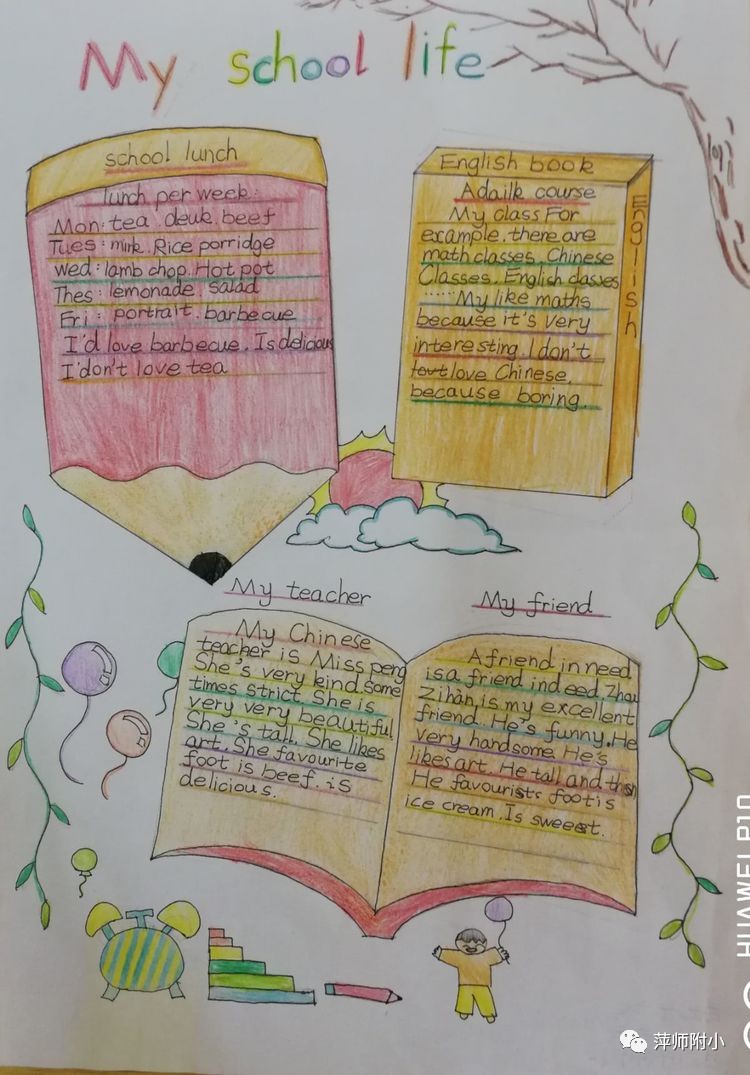 My school life
school lunch
lunch per week:
Mon: tea. deuk. beef
Tues: mirk. Rice porridge
wed: lamb chop. Hot pot
Thes: lemonade. salad
Fri: portrait. barbecue
I'd love barbecue. Is delicious
I'don't love tea
English book
English
A dailk course
My class For
example. there are
math classes. Chinese
Classes. English classes
...... My like maths
because it's very
interesting. I don't
love Chinese.
because boring.
My teacher
My Chinese
teacher is Miss peng
She's very kind. some
times strict. She is
very very beautiful
She's tall. She likes
art. She favourite
foot is beef. is
delicious.
My friend
A friend in need
is a friend indeed. Zhou
Zihàn is my excellent
friend. He's funny. He
very handsome. He's
likes art. He tall and thin
He favourists foot is
ice cream. Is sweeest.
HUAWEI P10
萍师附小